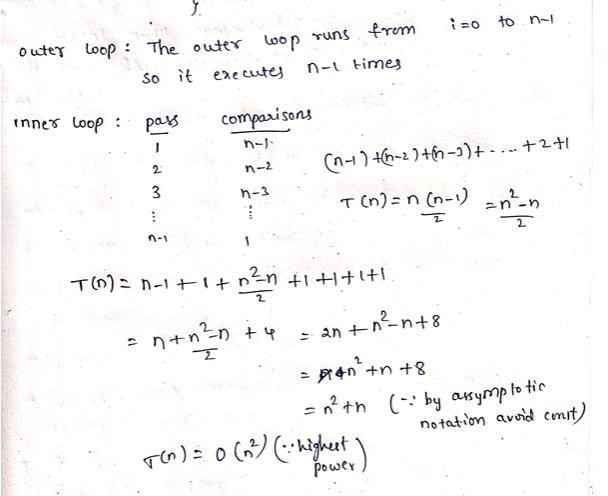 }
outer loop : The outer loop runs from i=0 to n-1
so it executes n-1 times
inner loop : pass comparisons
1 n-1
2 n-2
3 n-3
⋮ ⋮
n-1 1
(n-1)+(n-2)+(n-3)+.....+2+1
T(n) = n(n-1)/2 = n²-n/2
T(n) = n-1+1+ n²-n/2 +1+1+1+1
= n+ n²-n/2 +4 = 2n+n²-n+8
= n²+n+8
= n²+n (∵ by assymptotic
notation avoid const)
T(n) = O(n²) (∵ highest
power)